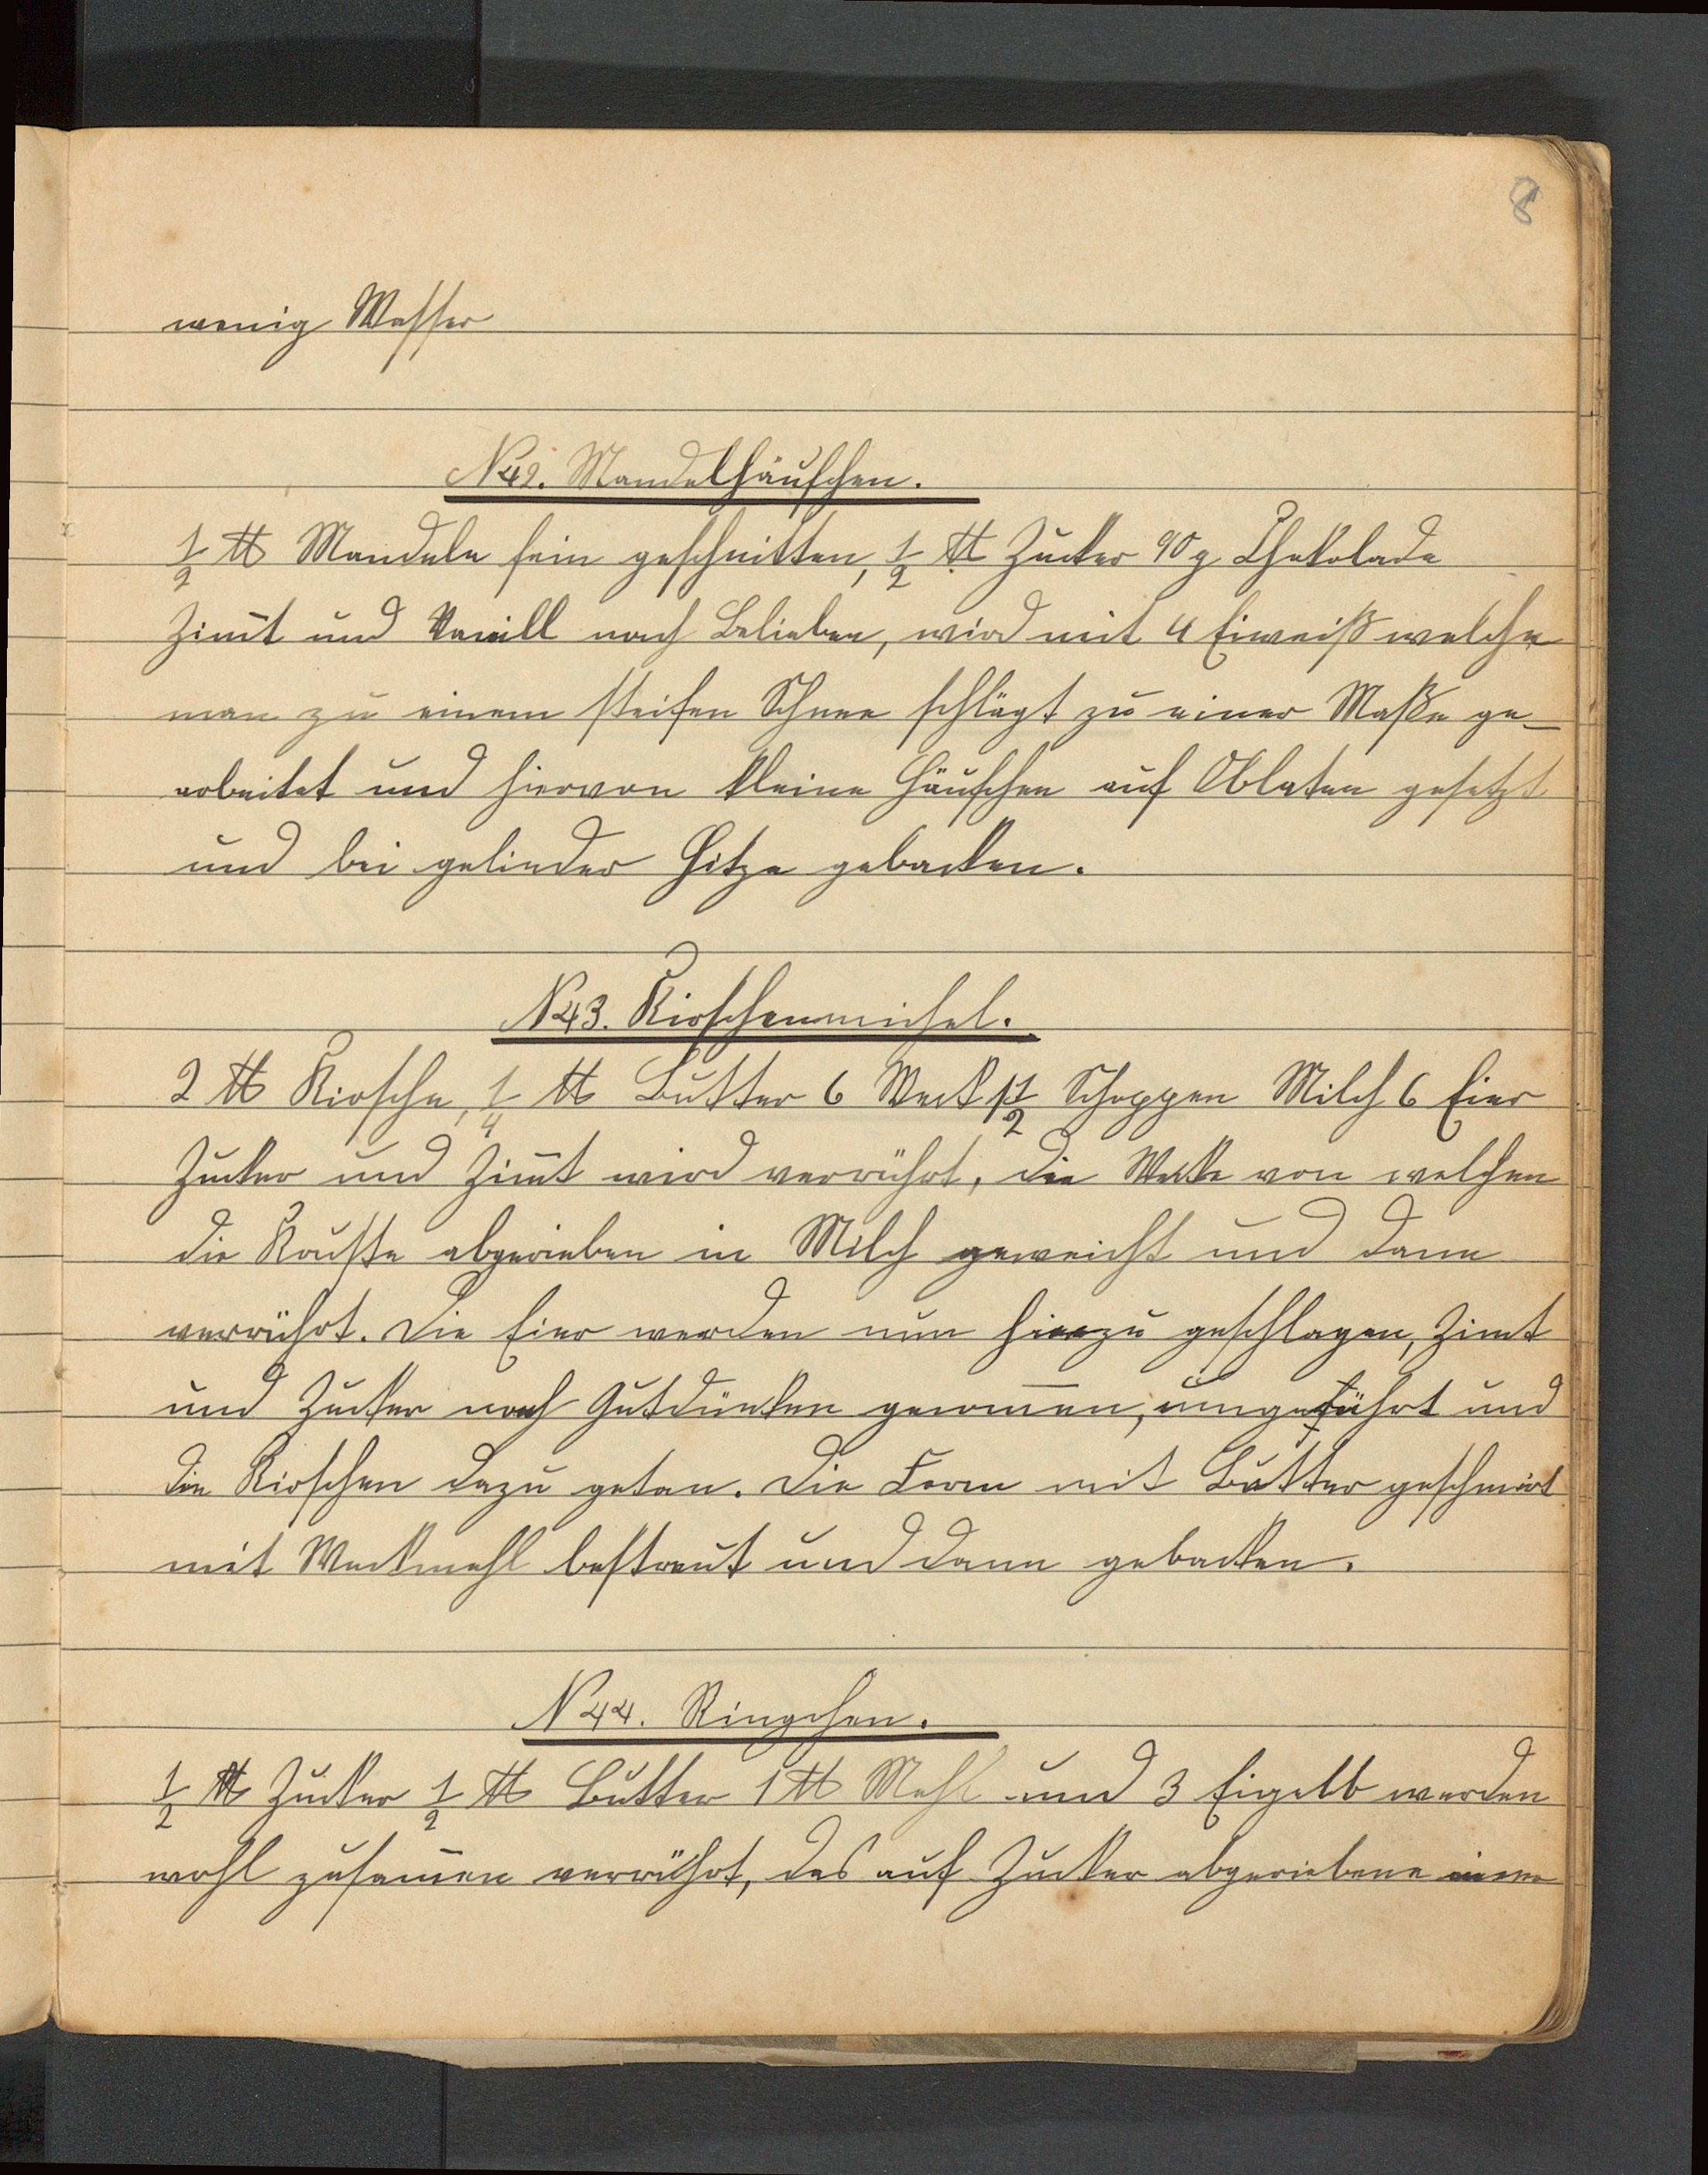 8
wenig Wasser
N 42. Mandelhäufchen.
1/2 ℔ Mandeln fein geschnitten, 1/2 ℔ Zucker 90 g Chokolade
Zim̄t und Vanill nach Belieben, wird mit 4 Eiweiß welche
man zu einem steifen Schnee schlägt zu einer Maße ge-
arbeitet und hiervon kleine Häufchen auf Oblaten gesetzt
und bei gelinder Hitze gebacken.
N 43. Kirschenmichel.
2 ℔ Kirsche, 1/4 ℔ Butter 6 Weck 1 1/2 Schoppen Milch 6 Eier
Zucker und Zim̄t wird verrührt, die Wecke von welchen
die Kruste abgerieben in Milch geweicht und dann
verrührt. Die Eier werden nun hierzu geschlagen, Zimt
und Zucker nach Gutdünken genom̄en, umgerührt und
die Kirschen dazu getan. Die Form mit Butter geschmirt
mit Weckmehl bestreut und dann gebacken.
N 44. Ringchen.
1/2 ℔ Zucker 1/2 ℔ Butter 1 ℔ Mehl und 3 Eigelb werden
wohl zusam̄en verrührt, das auf Zucker abgeriebene einer